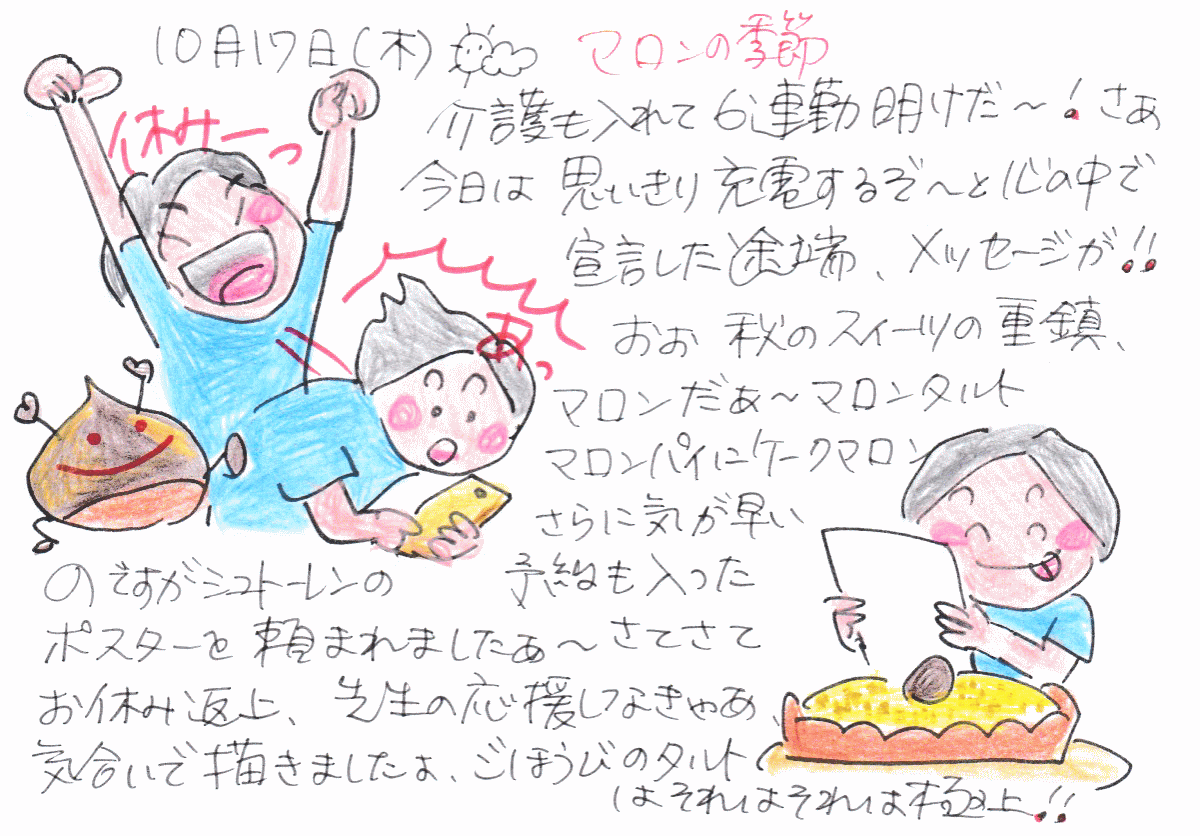 10月17日(木) マロンの季節
休みーっ
介護も入れて6連勤明けだ〜!さあ
今日は思いきり充電するぞ〜と心の中で
宣言した途端、メッセージが!!
あっ
おお 秋のスイーツの重鎮、
マロンだぁ〜マロンタルト
マロンパイにケークマロン
さらに気が早い
のですがシュトーレンの 予約も入った
ポスターを頼まれましたぁ〜さてさて
お休み返上、先生の応援しなきゃあ、
気合いで描きましたよ、ごほうびのタルト
はそれはそれは極上!!